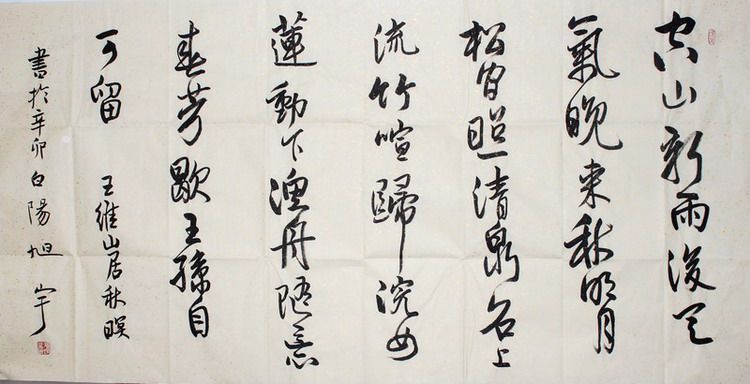 空山新雨後天
氣晚來秋明月
松間照清泉石上
流竹喧歸浣女
蓮動下漁舟隨意
春芳歇王孫自
可留
王維山居秋暝
書於辛卯白陽旭宇